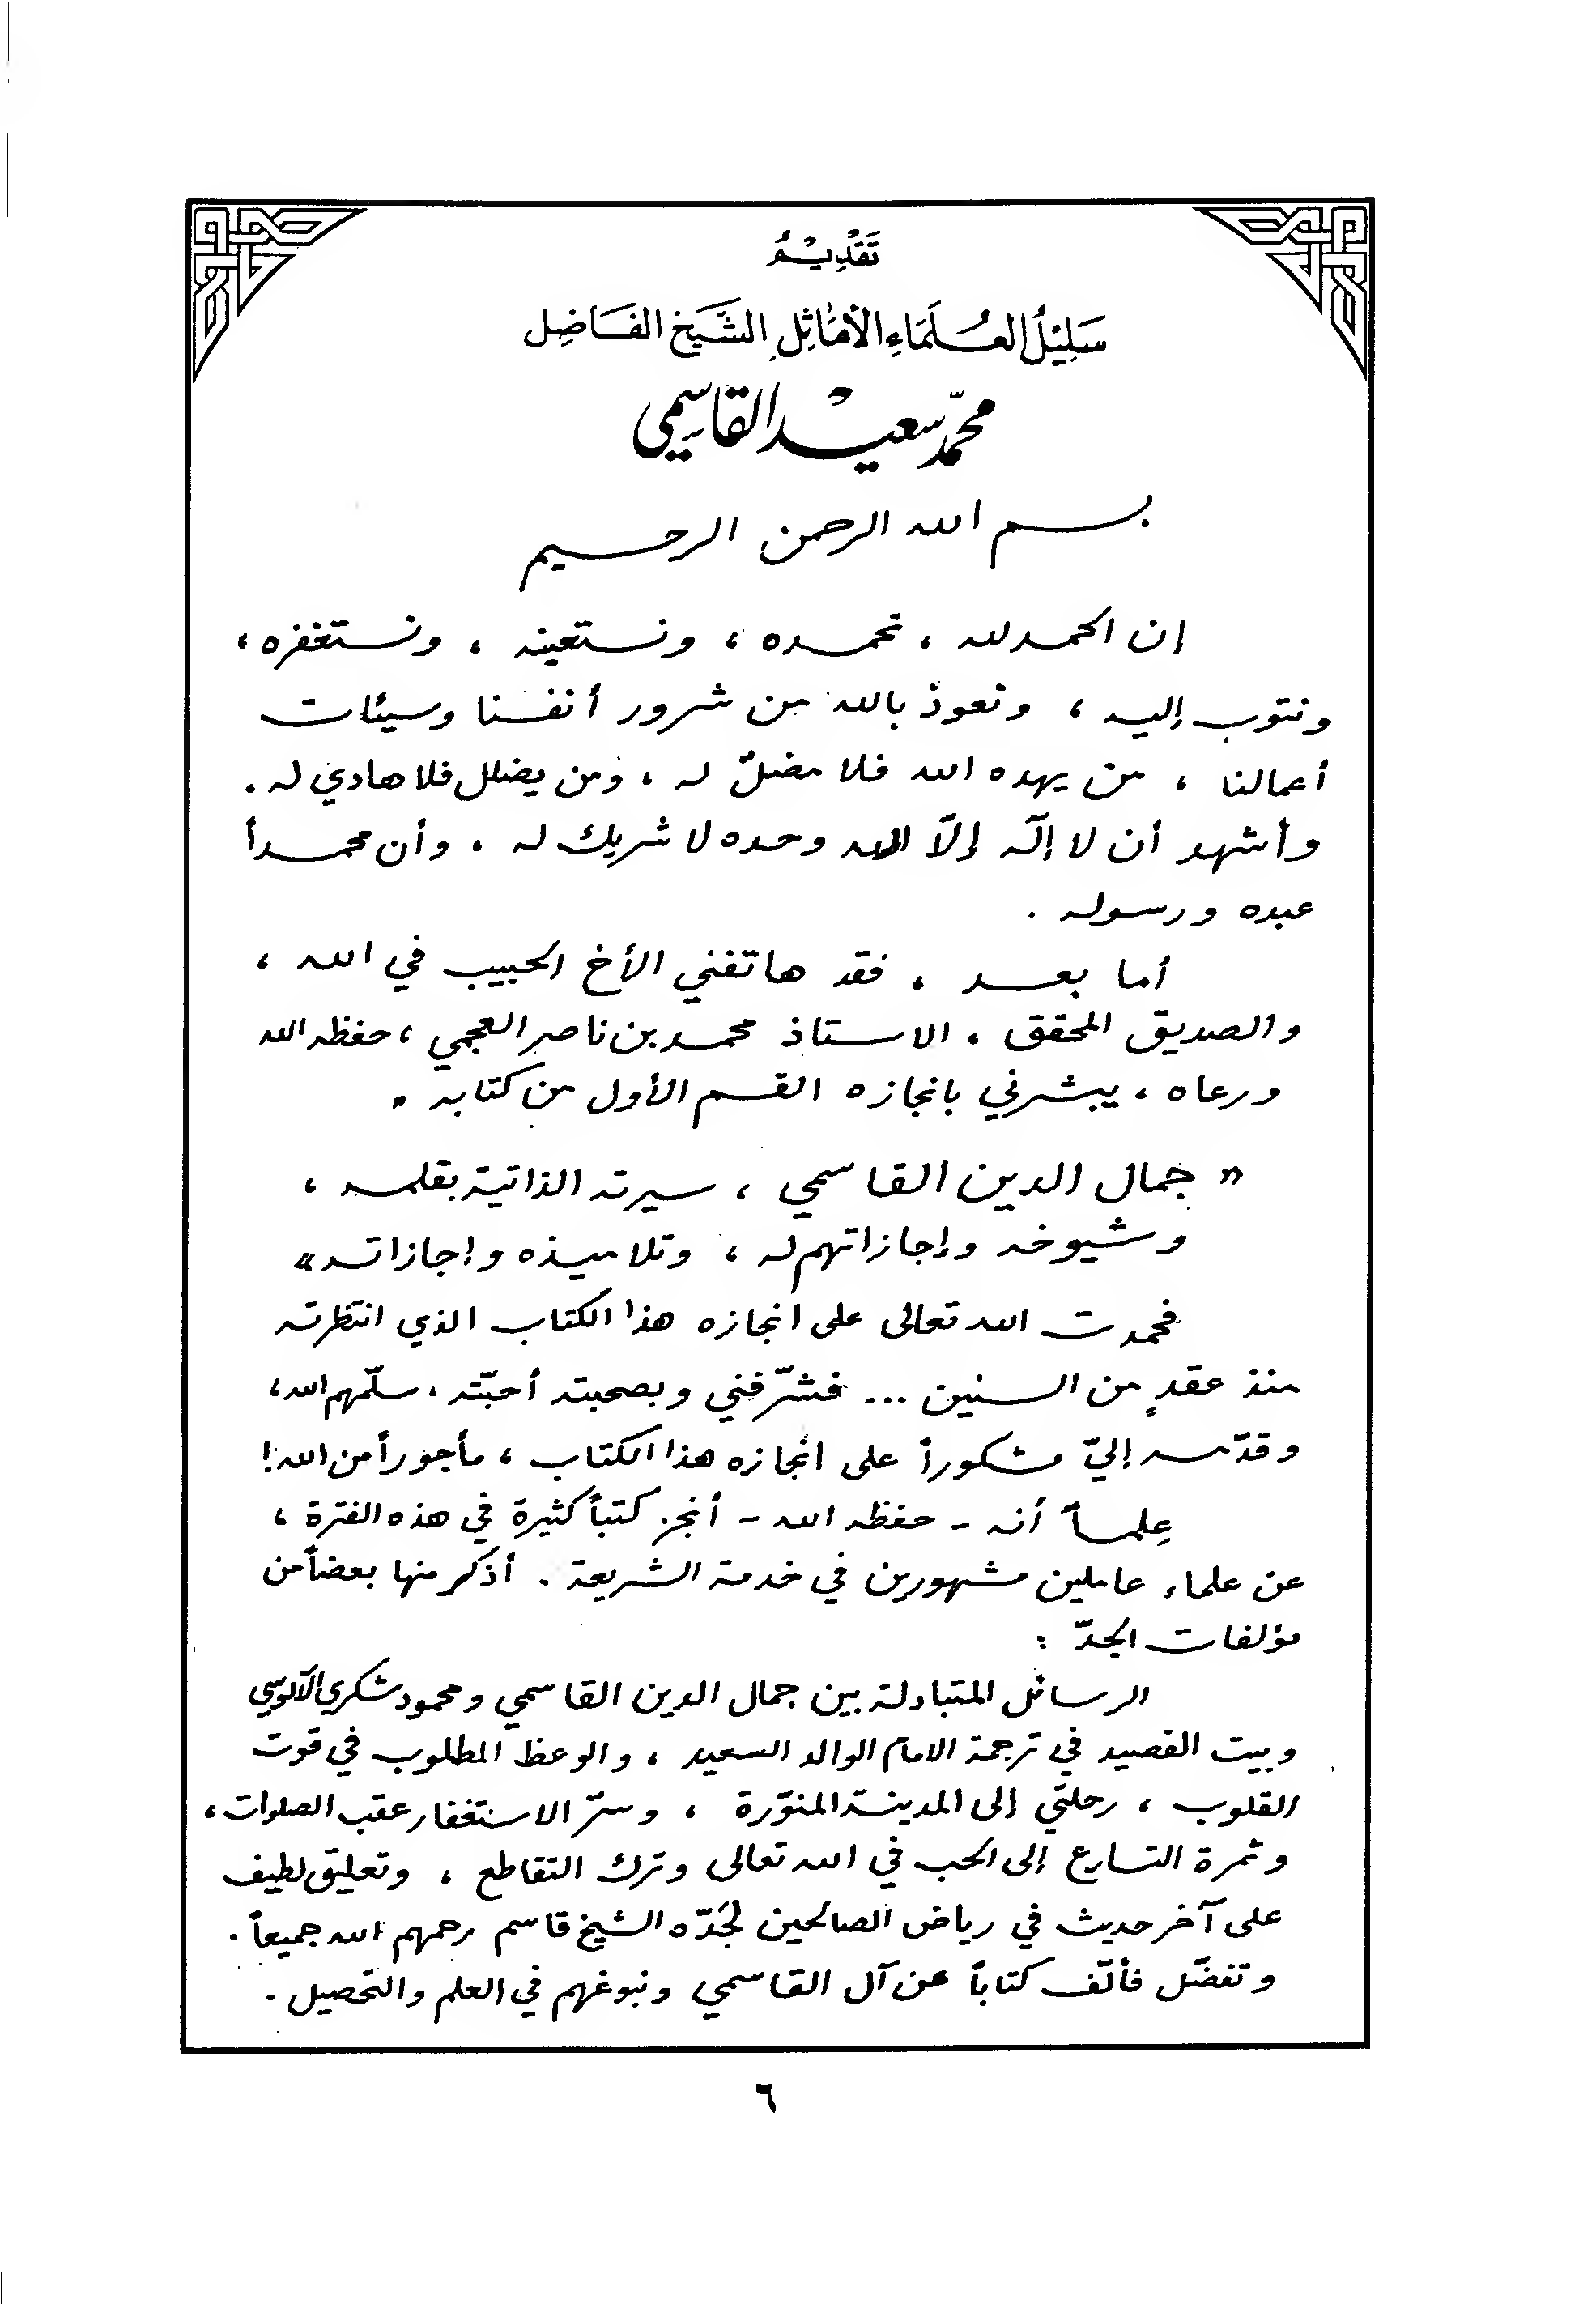 تَقْدِيْمُ
سَلِيْلُ العُلَمَاءِ الأَمَاثِلِ الشَّيَخِ الفَاضِلِ
محمّد سعيد القاسمي
بسم الله الرحمن الرحيم
إن الحمد لله ، نحمده ، ونستعينه ، ونستغفره ،
ونتوب إليه ، ونعوذ بالله من شرور أنفسنا وسيئات
أعمالنا ، من يهده الله فلا مضلّ له ، ومن يضلل فلا هادي له .
وأشهد أن لا إلَه إلاّ الله وحده لا شريك له ، وأن محمداً
عبده ورسوله .
أما بعد ، فقد هاتفني الأخ الحبيب في الله ،
والصديق المحقق ، الاستاذ محمد بن ناصر العجمي ، حفظه الله
ورعاه ، يبشرني بانجازه القسم الأول من كتابه "
« جمال الدين القاسمي ، سيرته الذاتية بقلمه ،
وشيوخه وإجازاتهم له ، وتلاميذه وإجازاته »
فحمدت الله تعالى على انجازه هذا الكتاب الذي انتظرته
منذ عقدٍ من السنين ... فشرّفني وبصحبته أحبّته ، سلّمهم الله ،
وقدّمه إليّ مشكوراً على انجازه هذا الكتاب ، مأجوراً من الله !
عِلماً أنه - حفظه الله - أنجز كتباً كثيرة في هذه الفترة ،
عن علماء عاملين مشهورين في خدمة الشريعة . أذكر منها بعضاً من
مؤلفات الجدّ :
الرسائل المتبادلة بين جمال الدين القاسمي ومحمود شكري الآلوسي
وبيت القصيد في ترجمة الامام الوالد السعيد ، والوعظ المطلوب في قوت
القلوب ، رحلتي إلى المدينة المنوّرة ، وسرّ الاستغفار عقب الصلوات ،
وثمرة التسارع إلى الحب في الله تعالى وترك التقاطع ، وتعليق لطيف
على آخر حديث في رياض الصالحين لجَدّه الشيخ قاسم رحمهم الله جميعاً .
وتفضّل فألّف كتاباً عن آل القاسمي ونبوغهم في العلم والتحصيل .
٦